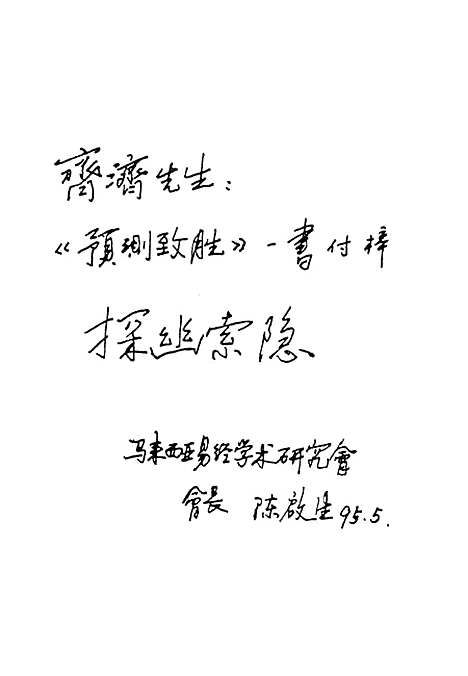 齊濟先生：
《預測致胜》一書付梓
探幽索隐
马来西亚易经学术研究會
會長 陈啟生 95.5.